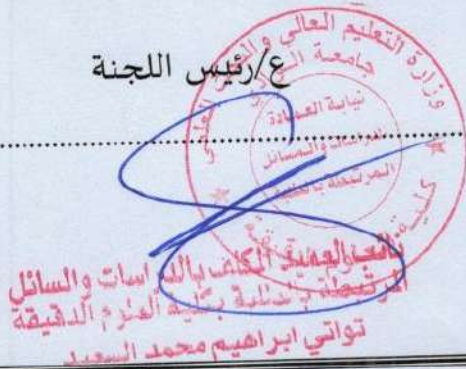 ع/رئيس اللجنة
وزارة التعليم العالي
جامعة
نيابة العمادة
للدراسات والمسائل
المرتبطة بالطلبة
نائب العميد المكلف بالدراسات والسائل
المرتبطة بالطلبة بكلية العلوم الدقيقة
تواتي ابراهيم محمد السعيد